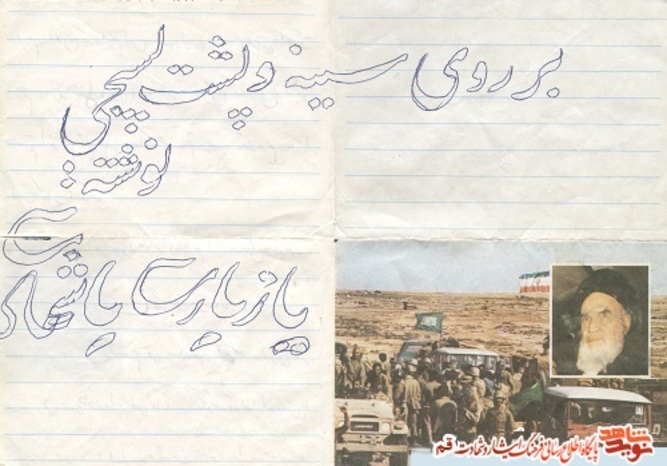 بر روی سینه و پشت بسیجی
نوشته :
یا زیارت یا شهادت
نوید شاهد
پایگاه اطلاع رسانی فرهنگ ایثار و شهادت قم